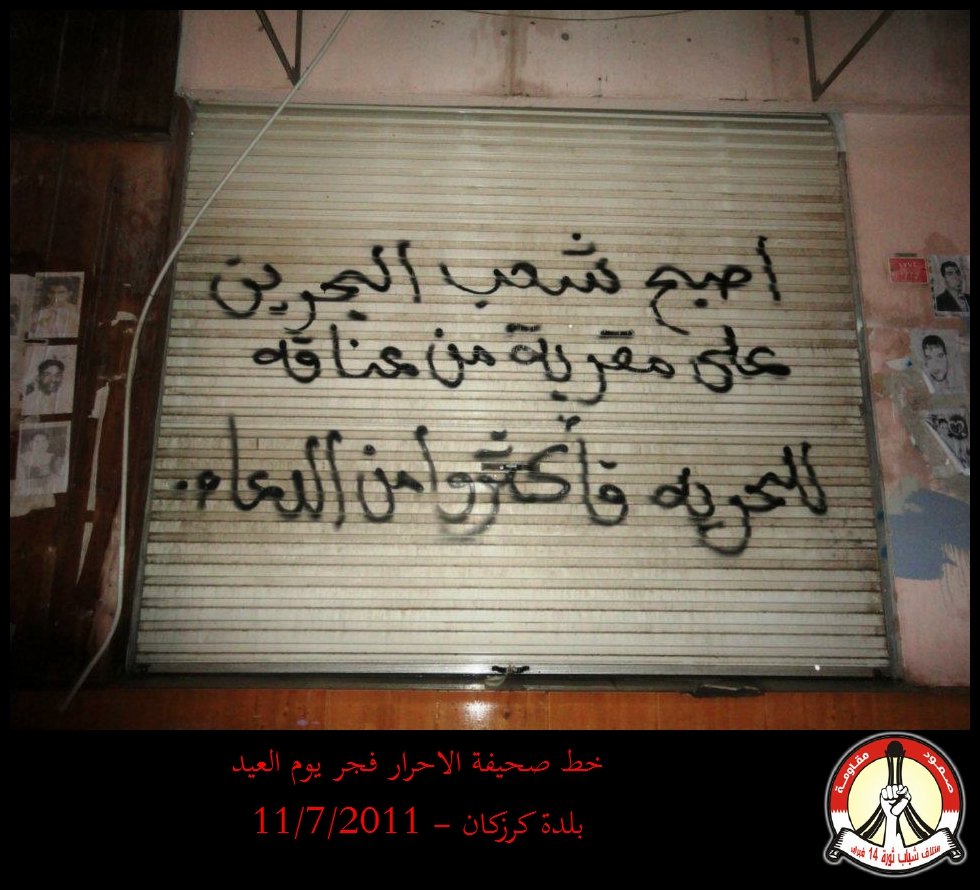 اصبح شعب البحرين
على مقربة من عناقه
للحريه فأكثروا من الدعاء.
خط صحيفة الاحرار فجر يوم العيد
بلدة كرزكان – 11/7/2011
صمود مقاومة
ائتلاف شباب ثورة 14 فبراير